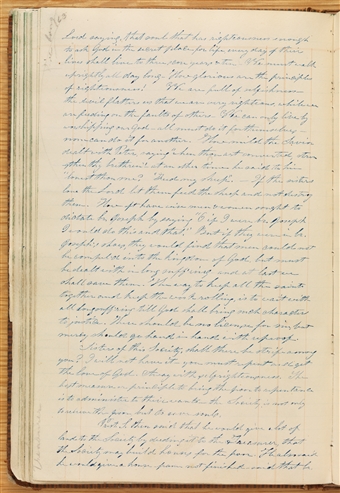 63
Lord saying, that soul that has righteousness enough
to ask God in the secret place for life every day of their
lives shall live to three score years & ten. We must walk
uprightly all day long. How glorious are the principles
of righteousness! We are full of selfishness
the devil flatters us that we are very righteous, while we
are feeding on the faults of others. We can only live by
worshipping our God all must do it for themselves
none can do it for another. How mild the Savior
dealt with Peter saying "when thou art converted, stren
gthen thy brethren". at another time he said to him
"lovest thou me?" "Feed my sheep." If the sisters
love the Lord let them feed the sheep and not destroy
them. How oft have wise men & women sought to
dictate br Joseph by saying "O if I were br. Joseph
I would do this and that." But if they were in br.
Joseph's shoes, they would find that men could not
be compelled into the kingdom of God, but must
be dealt with in long suffering and at last we
shall save them. The way to keep all the saints
together and keep the work rolling, is to wait with
all long suffering till God shall bring such characters
to justice. There should be no license for sin but
mercy should go hand in hand with reproof.
Sisters of this Society, shall there be strife among
you? I will not have it you must repent and get
the love of God. Away with self righteousness. The
best measure or principle to bring the poor to repentance
is to administer to their wants the Society is not only
to relieve the poor, but to save souls.
Prest. S. then said that he would give a lot of
land to the Society by deeding it to the Treasurer that
the Society may build houses for the poor. He also said
he would give a house frame not finished said that br.